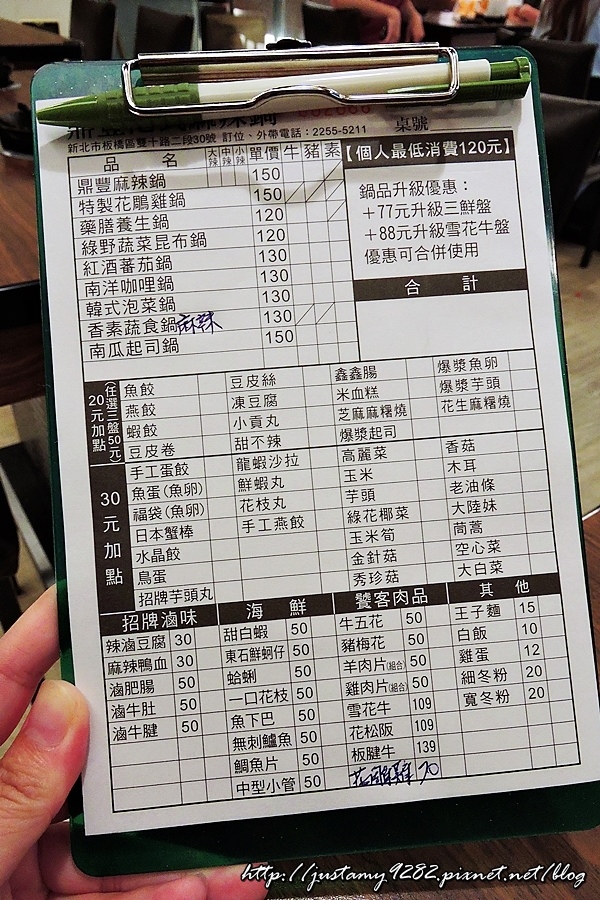 麻辣鍋
桌號
新北市板橋區雙十路二段30號 訂位、外帶電話：2255-5211
品名 大辣 中辣 小辣 單價 牛 豬 素
【個人最低消費120元】
鼎豐麻辣鍋 150
特製花雕雞鍋 150
藥膳養生鍋 120
綠野蔬菜昆布鍋 120
紅酒蕃茄鍋 130
南洋咖哩鍋 130
韓式泡菜鍋 130
香素蔬食鍋 麻辣 130
南瓜起司鍋 150
鍋品升級優惠：
＋77元升級三鮮盤
＋88元升級雪花牛盤
優惠可合併使用
合計
20元加點
（任選三盤50元）
魚餃 豆皮絲 鑫鑫腸 爆漿魚卵
燕餃 凍豆腐 米血糕 爆漿芋頭
蝦餃 小貢丸 芝麻麻糬燒 花生麻糬燒
豆皮卷 甜不辣 爆漿起司
30元加點
手工蛋餃 龍蝦沙拉 高麗菜 香菇
魚蛋(魚卵) 鮮蝦丸 玉米 木耳
福袋(魚卵) 花枝丸 芋頭 老油條
日本蟹棒 手工燕餃 綠花椰菜 大陸妹
水晶餃 玉米筍 茼蒿
鳥蛋 金針菇 空心菜
招牌芋頭丸 秀珍菇 大白菜
招牌滷味
辣滷豆腐 30
麻辣鴨血 30
滷肥腸 50
滷牛肚 50
滷牛腱 50
海鮮
甜白蝦 50
東石鮮蚵仔 50
蛤蜊 50
一口花枝 50
魚下巴 50
無刺鱸魚 50
鯛魚片 50
中型小管 50
饕客肉品
牛五花 50
豬梅花 50
羊肉片(組合) 50
雞肉片(組合) 50
雪花牛 109
花松阪 109
板腱牛 139
花雕雞 70
其他
王子麵 15
白飯 10
雞蛋 12
細冬粉 20
寬冬粉 20
http://justamy9282.pixnet.net/blog